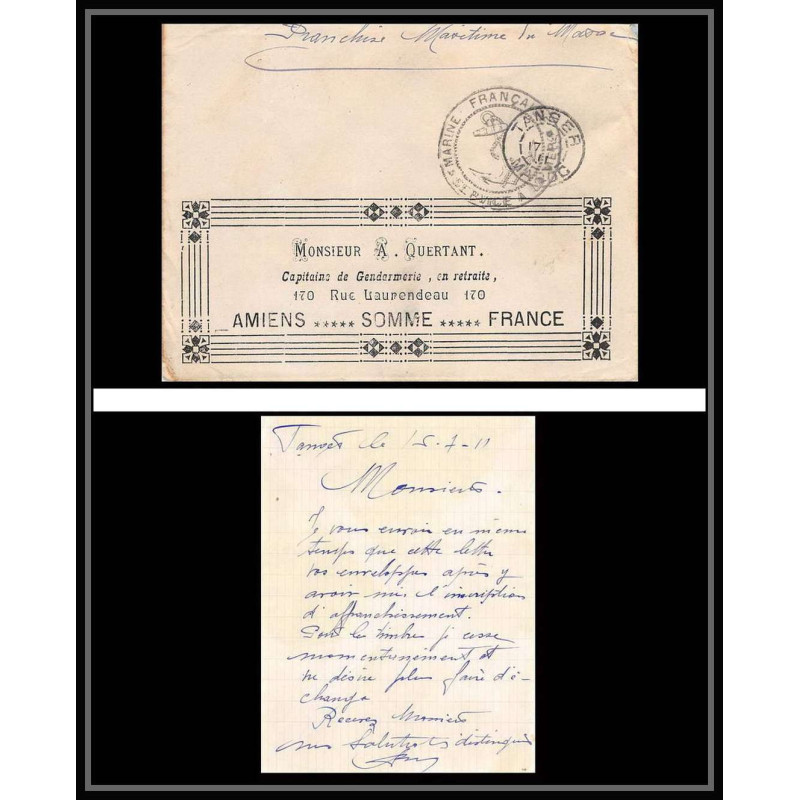 Franchise Maritime du Maroc
MARINE FRANÇAISE
SERVICE A
TANGER
17
MAROC
MONSIEUR A. QUERTANT.
Capitaine de Gendarmerie, en retraite,
170 RUE LAURENDEAU 170
AMIENS ***** SOMME ***** FRANCE
Tanger le 15-7-11
Monsieur.
Je vous envoie en même
temps que cette lettre
vos enveloppes après y
avoir mis l'inscription
d'affranchissement.
Pour les timbres je cesse
momentanément et
ne désire plus faire d'é-
change
Recevez Monsieur
mes salutations distinguées